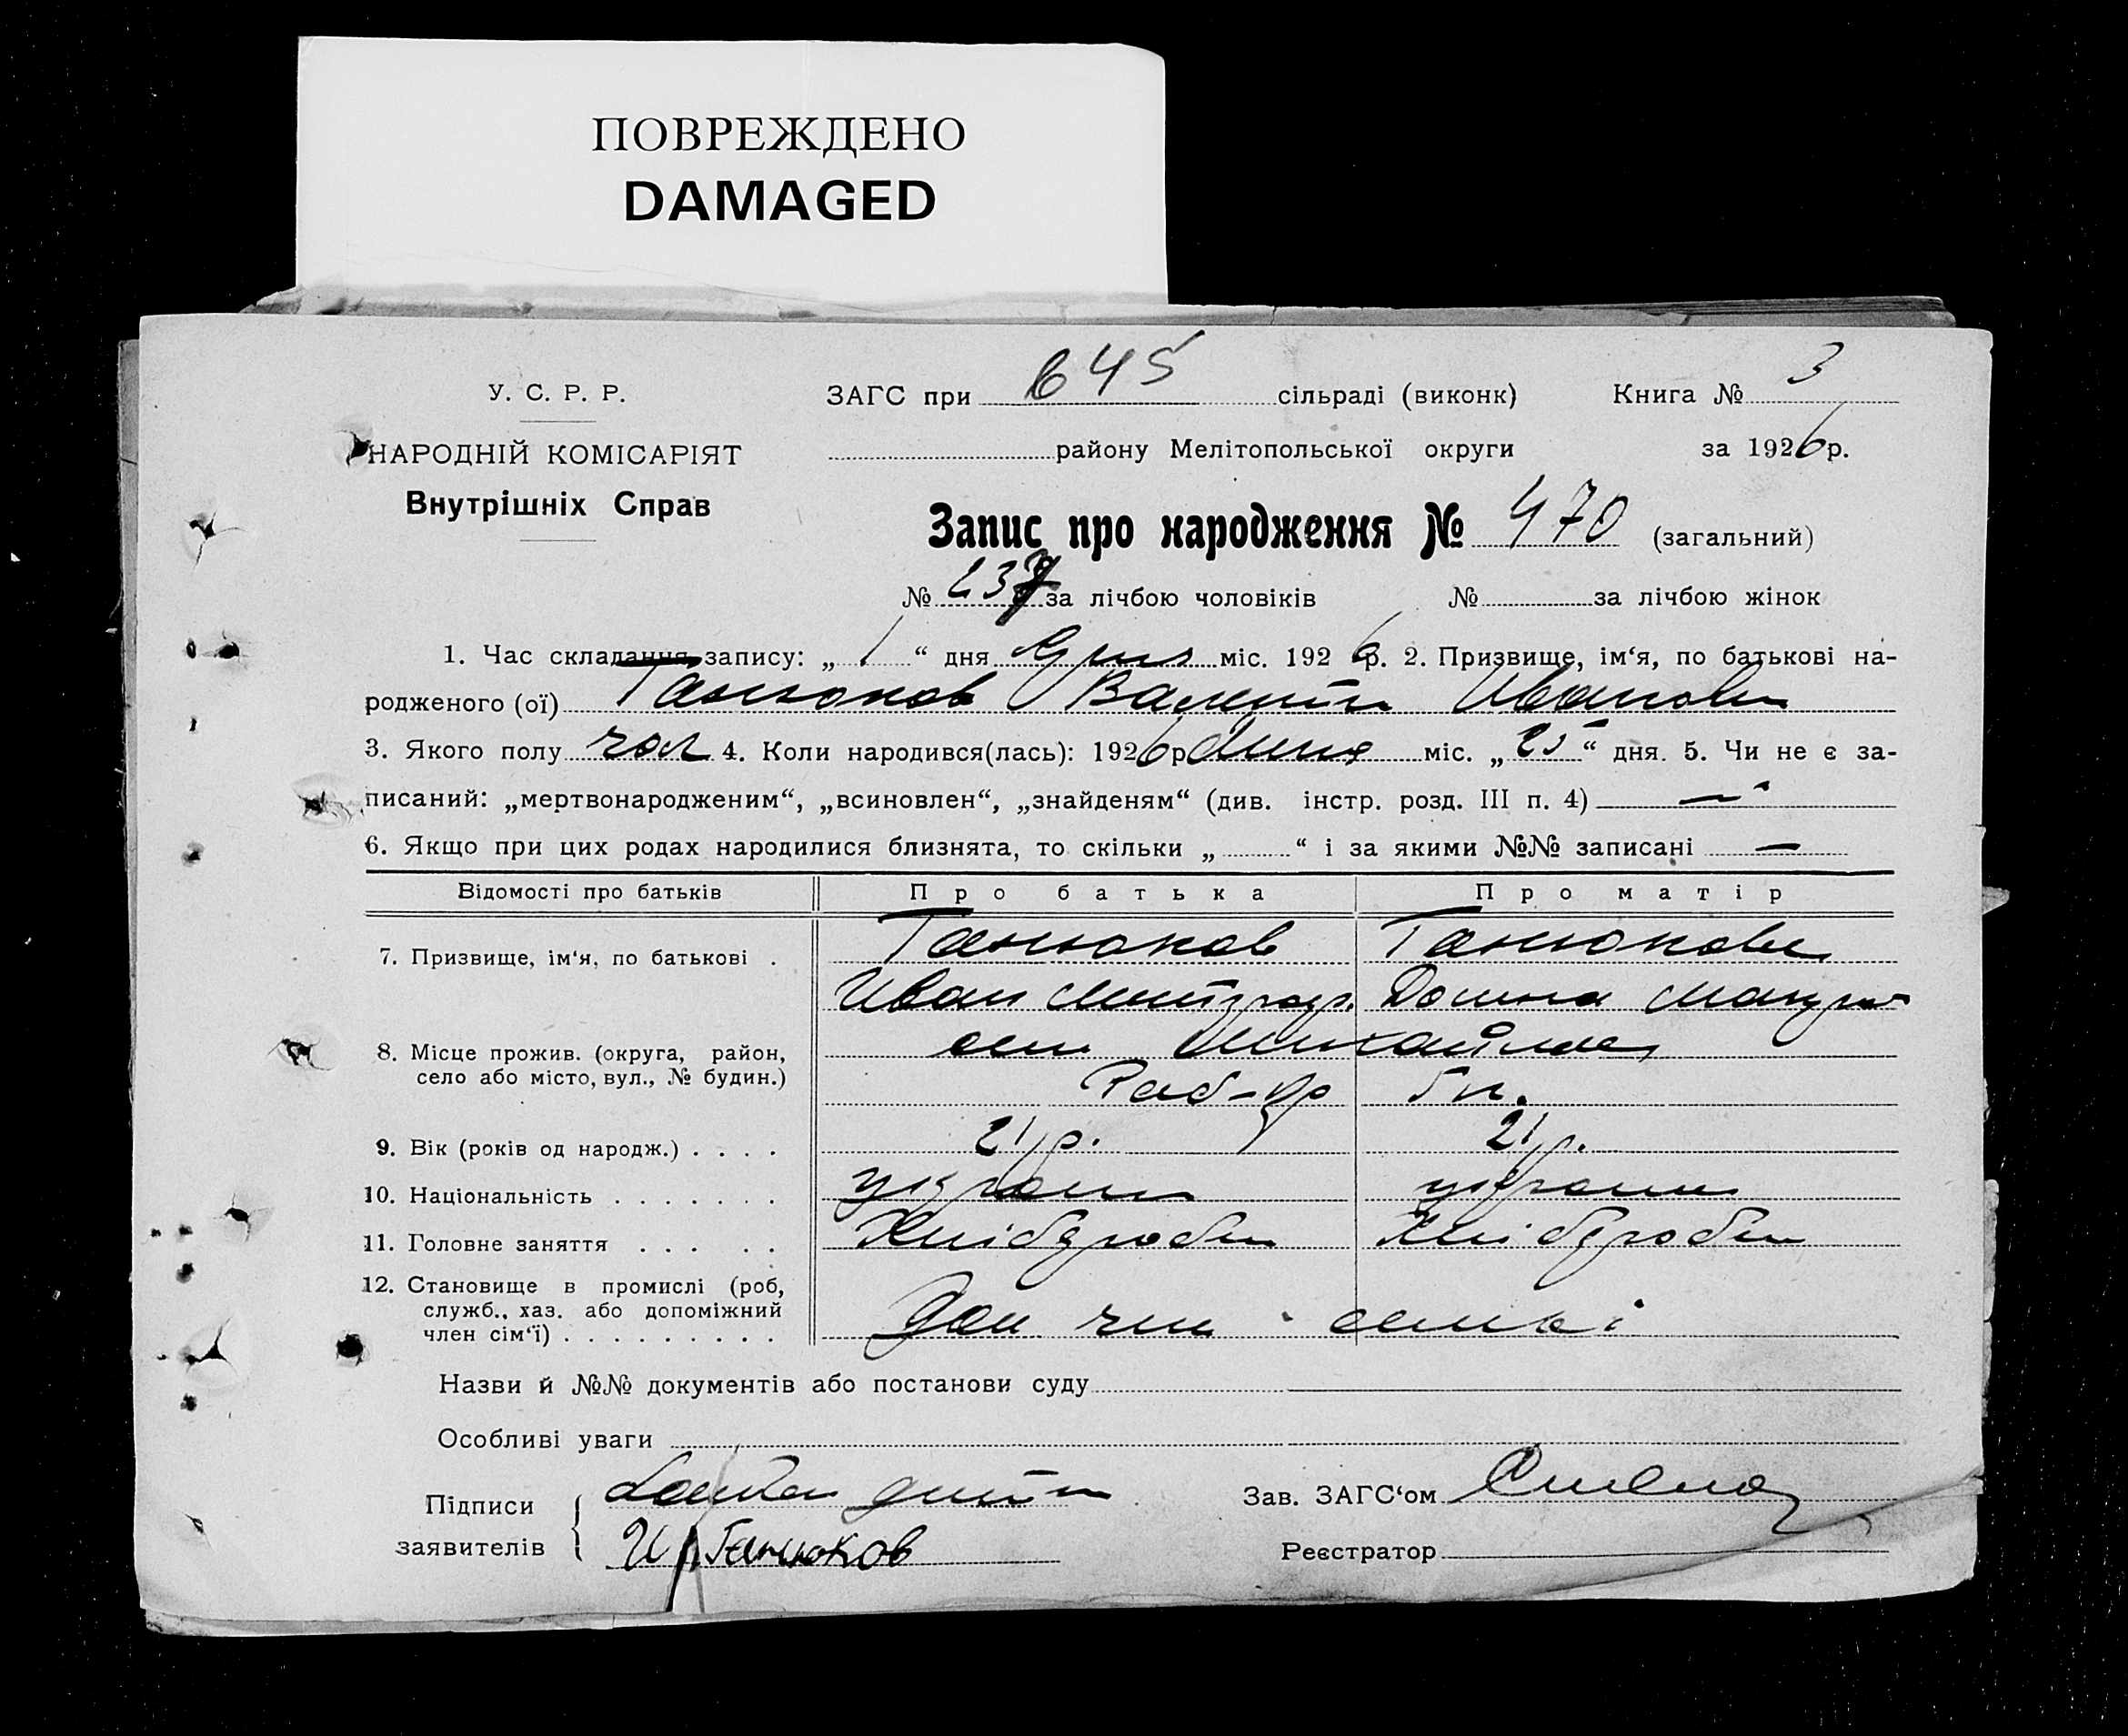 ПОВРЕЖДЕНО
DAMAGED
У. С. Р. Р. ЗАГС при 645 сільраді (виконк) Книга № 3
НАРОДНІЙ КОМІСАРІЯТ району Мелітопольської округи за 1926 р.
Внутрішніх Справ
Запис про народження № 470 (загальний)
№ 237 за лічбою чоловіків № за лічбою жінок
1. Час складання запису: „ 1 “ дня міс. 1926 р. 2. Призвище, ім‘я, по батькові на-
родженого (ої) Ганюков Валентин Иванович
3. Якого полу чол 4. Коли народився(лась): 1926 р Липня міс. „ 25 “ дня. 5. Чи не є за-
писаний: „мертвонародженим“, „всиновлен“, „знайденям“ (див. інстр. розд. III п. 4) —
6. Якщо при цих родах народилися близнята, то скільки „ “ і за якими №№ записані —
Відомості про батьків Про батька Про матір
7. Призвище, ім‘я, по батькові . Ганюков Ганюкова
Иван Митроф. Домна
8. Місце прожив. (округа, район, село або місто, вул., № будин.) Михайлівка
9. Вік (років од народж.) . . . . 21 р. 21 р.
10. Національність . . . . . . . україн україн
11. Головне заняття . . . . . Хліборобст Хліборобст
12. Становище в промислі (роб, служб., хаз. або допоміжний член сім‘ї) . . . . . . . . . Доп член сем'ї
Назви й №№ документів або постанови суду
Особливі уваги
Підписи заявителів Батько дитини Зав. ЗАГС‘ом
И Ганюков Реєстратор